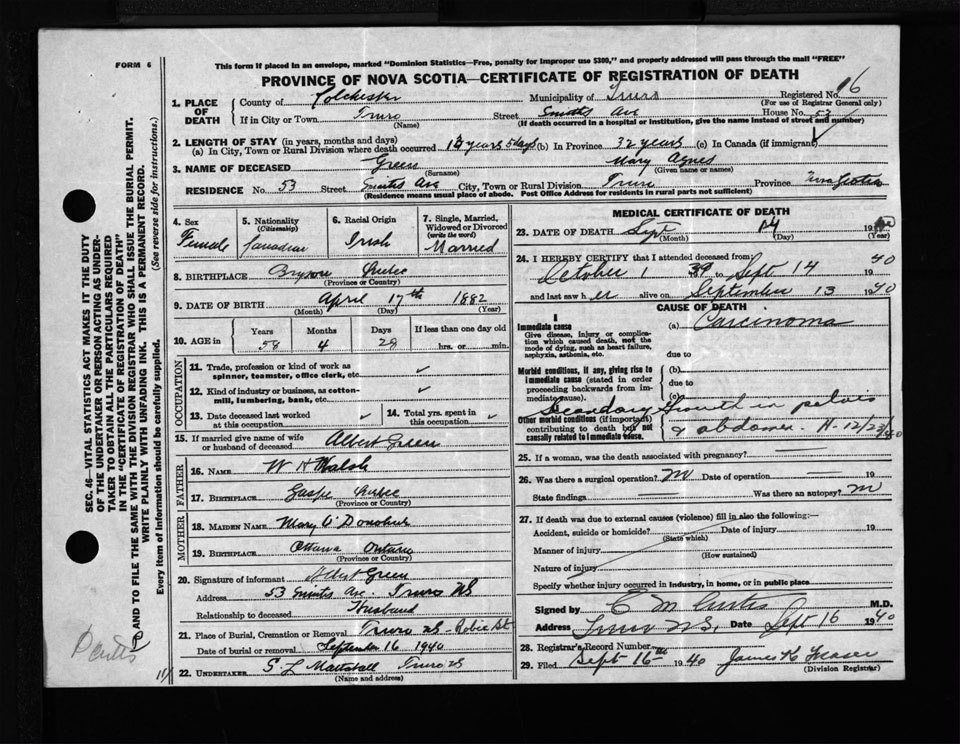 FORM 6
This form if placed in an envelope, marked "Dominion Statistics—Free, penalty for improper use $300," and properly addressed will pass through the mail "FREE"
PROVINCE OF NOVA SCOTIA—CERTIFICATE OF REGISTRATION OF DEATH
Registered No. 16
(For use of Registrar General only)
1. PLACE OF DEATH County of Colchester Municipality of Truro
If in City or Town Truro (Name) Street Smiths Ave House No. 53
(If death occurred in a hospital or institution, give the name instead of street and number)
2. LENGTH OF STAY (in years, months and days)
(a) In City, Town or Rural Division where death occurred years 5 days (b) In Province 32 years (c) In Canada (if immigrant)
3. NAME OF DECEASED Green (Surname) Mary Agnes (Given name or names)
RESIDENCE No. 53 Street Smiths Ave City, Town or Rural Division Truro Province Nova Scotia
(Residence means usual place of abode. Post Office Address for residents in rural parts not sufficient)
4. Sex Female
5. Nationality (Citizenship) Canadian
6. Racial Origin Irish
7. Single, Married, Widowed or Divorced (write the word) Married
8. BIRTHPLACE Bryson Quebec
(Province or Country)
9. DATE OF BIRTH April 17th 1882
(Month) (Day) (Year)
10. AGE in Years 58 Months 4 Days 28 If less than one day old hrs. or min.
OCCUPATION
11. Trade, profession or kind of work as spinner, teamster, office clerk, etc.
12. Kind of industry or business, as cotton-mill, lumbering, bank, etc.
13. Date deceased last worked at this occupation
14. Total yrs. spent in this occupation
15. If married give name of wife or husband of deceased Albert Green
FATHER
16. NAME W H Walsh
17. BIRTHPLACE Gaspe Quebec
(Province or Country)
MOTHER
18. MAIDEN NAME Mary O'Donohue
19. BIRTHPLACE Ottawa Ontario
(Province or Country)
20. Signature of informant Albert Green
Address 53 Smiths Ave. Truro NS
Relationship to deceased Husband
21. Place of Burial, Cremation or Removal Truro NS Robie St
Date of burial or removal September 16 1940
22. UNDERTAKER S L Mattatall Truro NS
(Name and address)
MEDICAL CERTIFICATE OF DEATH
23. DATE OF DEATH Sept 14 19
(Month) (Day) (Year)
24. I HEREBY CERTIFY that I attended deceased from:
October 1 39 to Sept 14 1940
and last saw her alive on September 13 1940
CAUSE OF DEATH
I
Immediate cause
Give disease, injury or complication which caused death, not the mode of dying, such as heart failure, asphyxia, asthenia, etc.
(a) Carcinoma
due to
Morbid conditions, if any, giving rise to immediate cause (stated in order proceeding backwards from immediate cause).
(b)
due to
(c)
Other morbid conditions (if important) contributing to death but not causally related to immediate cause.
Secondary Growth in pelvis
& abdomen. H-12/23/40
25. If a woman, was the death associated with pregnancy?
26. Was there a surgical operation? Date of operation 19
State findings Was there an autopsy?
27. If death was due to external causes (violence) fill in also the following:—
Accident, suicide or homicide? Date of injury 19
(State which)
Manner of injury
(How sustained)
Nature of injury
Specify whether injury occurred in industry, in home, or in public place
Signed by C M M.D.
Address Truro N.S. Date Sept 16 1940
28. Registrar's Record Number
29. Filed Sept 16th 1940 James H Fraser
(Division Registrar)
SEC. 46—VITAL STATISTICS ACT MAKES IT THE DUTY
OF THE UNDERTAKER OR PERSON ACTING AS UNDER-
TAKER TO OBTAIN ALL THE PARTICULARS REQUIRED
IN THE "CERTIFICATE OF REGISTRATION OF DEATH"
AND TO FILE THE SAME WITH THE DIVISION REGISTRAR WHO SHALL ISSUE THE BURIAL PERMIT.
WRITE PLAINLY WITH UNFADING INK. THIS IS A PERMANENT RECORD.
Every item of Information should be carefully supplied. (See reverse side for instructions.)